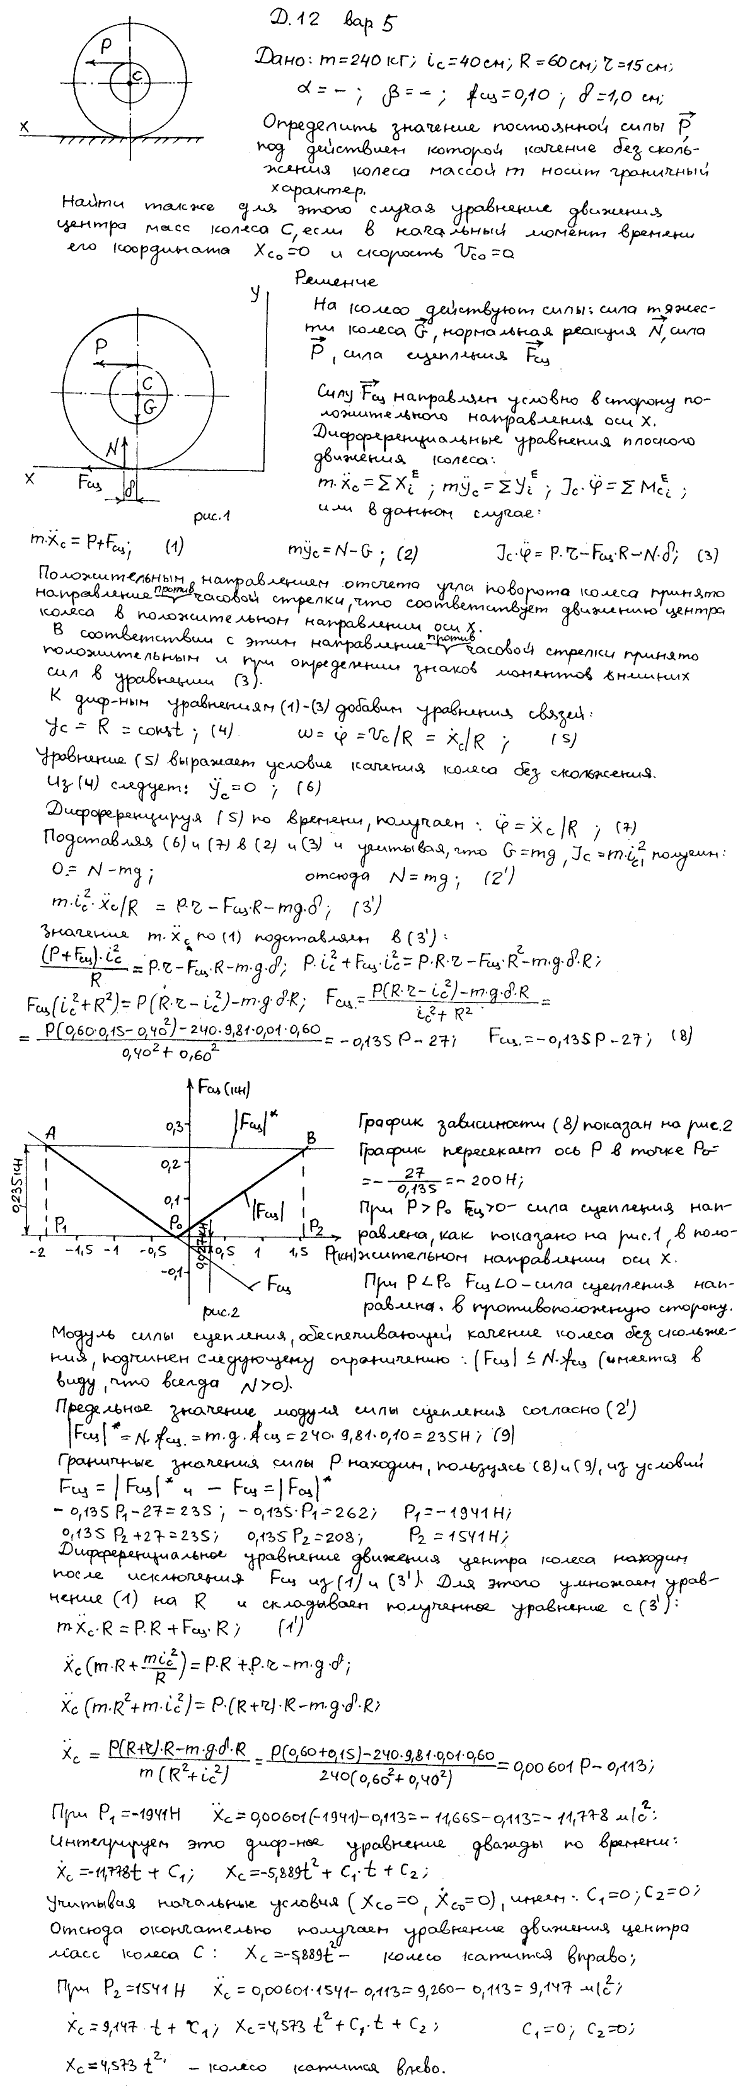 Д.12 вар 5
Дано: m=240 кг; i_c=40 см; R=60 см; r=15 см;
α= – ; β= – ; f_сц=0,10 ; δ=1,0 см;
Определить значение постоянной силы P,
под действием которой качение без сколь-
жения колеса массой m носит граничный
характер.
Найти также для этого случая уравнение движения
центра масс колеса C, если в начальный момент времени
его координата X_C0=0 и скорость V_C0=0
P
C
X
Решение
На колесо действуют силы: сила тяжес-
ти колеса G, нормальная реакция N, сила
P, сила сцепления F_сц
Силу F_сц направляем условно в сторону по-
ложительного направления оси X.
Дифференциальные уравнения плоского
движения колеса:
m·ẍ_c = ΣX_i^E ; mÿ_c = ΣY_i^E ; J_c·φ̈ = ΣM_ci^E ;
или в данном случае:
y
P
C
G
N
X
F_сц
δ
рис.1
m·ẍ_c = P+F_сц; (1) mÿ_c = N-G ; (2) J_c·φ̈ = P·r-F_сц·R-N·δ; (3)
Положительным направлением отсчета угла поворота колеса принято
направление против часовой стрелки, что соответствует движению центра
колеса в положительном направлении оси X.
В соответствии с этим направление против часовой стрелки принято
положительным и при определении знаков моментов внешних
сил в уравнении (3).
К диф-ным уравнениям (1)-(3) добавим уравнения связей:
y_c = R = const ; (4) ω = φ̇ = V_c/R = ẋ_c/R ; (5)
Уравнение (5) выражает условие качения колеса без скольжения.
Из (4) следует: ÿ_c=0 ; (6)
Дифференцируя (5) по времени, получаем : φ̈ = ẍ_c/R ; (7)
Подставляя (6) и (7) в (2) и (3) и учитывая, что G=mg, J_c=m·i_c², получим:
0 = N-mg; отсюда N=mg; (2')
m·i_c²·ẍ_c/R = P·r-F_сц·R-mg·δ; (3')
Значение m·ẍ_c по (1) подставляем в (3'):
(P+F_сц)·i_c²/R = P·r-F_сц·R-m·g·δ; P·i_c²+F_сц·i_c²=P·R·r-F_сц·R²-m·g·δ·R;
F_сц(i_c²+R²)=P(R·r-i_c²)-m·g·δ·R; F_сц=(P(R·r-i_c²)-m·g·δ·R)/(i_c²+R²)=
= (P(0,60·0,15-0,40²)-240·9,81·0,01·0,60)/(0,40²+0,60²) = -0,135P-27; F_сц=-0,135P-27; (8)
F_сц(кн)
A
0,3
|F_сц|*
B
0,235кН
0,2
0,1
|F_сц|
P1
P0
0,027кН
P2
-2 -1,5 -1 -0,5 0,5 1 1,5 P(кн)
-0,1
F_сц
рис.2
График зависимости (8) показан на рис.2
График пересекает ось P в точке P0=
= - 27/0,135 = -200Н;
При P>P0 F_сц>0 - сила сцепления нап-
равлена, как показано на рис.1, в поло-
жительном направлении оси X.
При P<P0 F_сц<0 - сила сцепления нап-
равлена в противоположную сторону.
Модуль силы сцепления, обеспечивающей качение колеса без скольже-
ния, подчинен следующему ограничению : |F_сц| ≤ N·f_сц (имеется в
виду, что всегда N>0).
Предельное значение модуля силы сцепления согласно (2')
|F_сц|*=N·f_сц=m·g·f_сц=240·9,81·0,10=235Н; (9)
Граничные значения силы P находим, пользуясь (8) и (9), из условий
F_сц = |F_сц|* и - F_сц=|F_сц|*
-0,135P1-27=235 ; -0,135·P1=262; P1=-1941Н;
0,135P2+27=235; 0,135P2=208; P2=1541Н;
Дифференциальное уравнение движения центра колеса находим
после исключения F_сц из (1) и (3'). Для этого умножаем урав-
нение (1) на R и складываем полученное уравнение с (3'):
m·ẍ_c·R = P·R+F_сц·R; (1')
ẍ_c(m·R+mi_c²/R)=P·R+P·r-m·g·δ;
ẍ_c(m·R²+m·i_c²)=P·(R+r)·R-m·g·δ·R;
ẍ_c = (P(R+r)·R-m·g·δ·R)/(m(R²+i_c²)) = (P(0,60+0,15)-240·9,81·0,01·0,60)/(240(0,60²+0,40²)) = 0,00601P-0,113;
При P1=-1941Н ẍ_c=0,00601(-1941)-0,113=-11,665-0,113=-11,778 м/с²;
Интегрируем это диф-ное уравнение дважды по времени:
ẋ_c=-11,778t+C1; x_c=-5,889t²+C1·t+C2;
Учитывая начальные условия (X_C0=0, ẋ_C0=0), имеем: C1=0; C2=0;
Отсюда окончательно получаем уравнение движения центра
масс колеса C: x_c=-5,889t² - колесо катится вправо;
При P2=1541Н ẍ_c=0,00601·1541-0,113=9,260-0,113=9,147 м/с²;
ẋ_c=9,147·t+C1; x_c=4,573t²+C1·t+C2; C1=0; C2=0;
x_c=4,573t². - колесо катится влево.